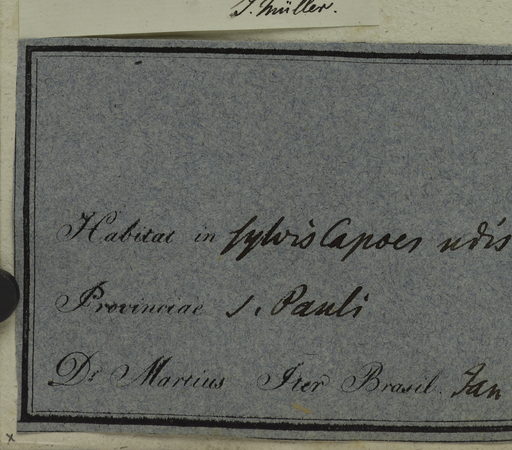 J. Müller.
Habitat in sylvis Capoes udis
Provinciae S. Pauli
Dr Martius Iter Brasil. Jan
x